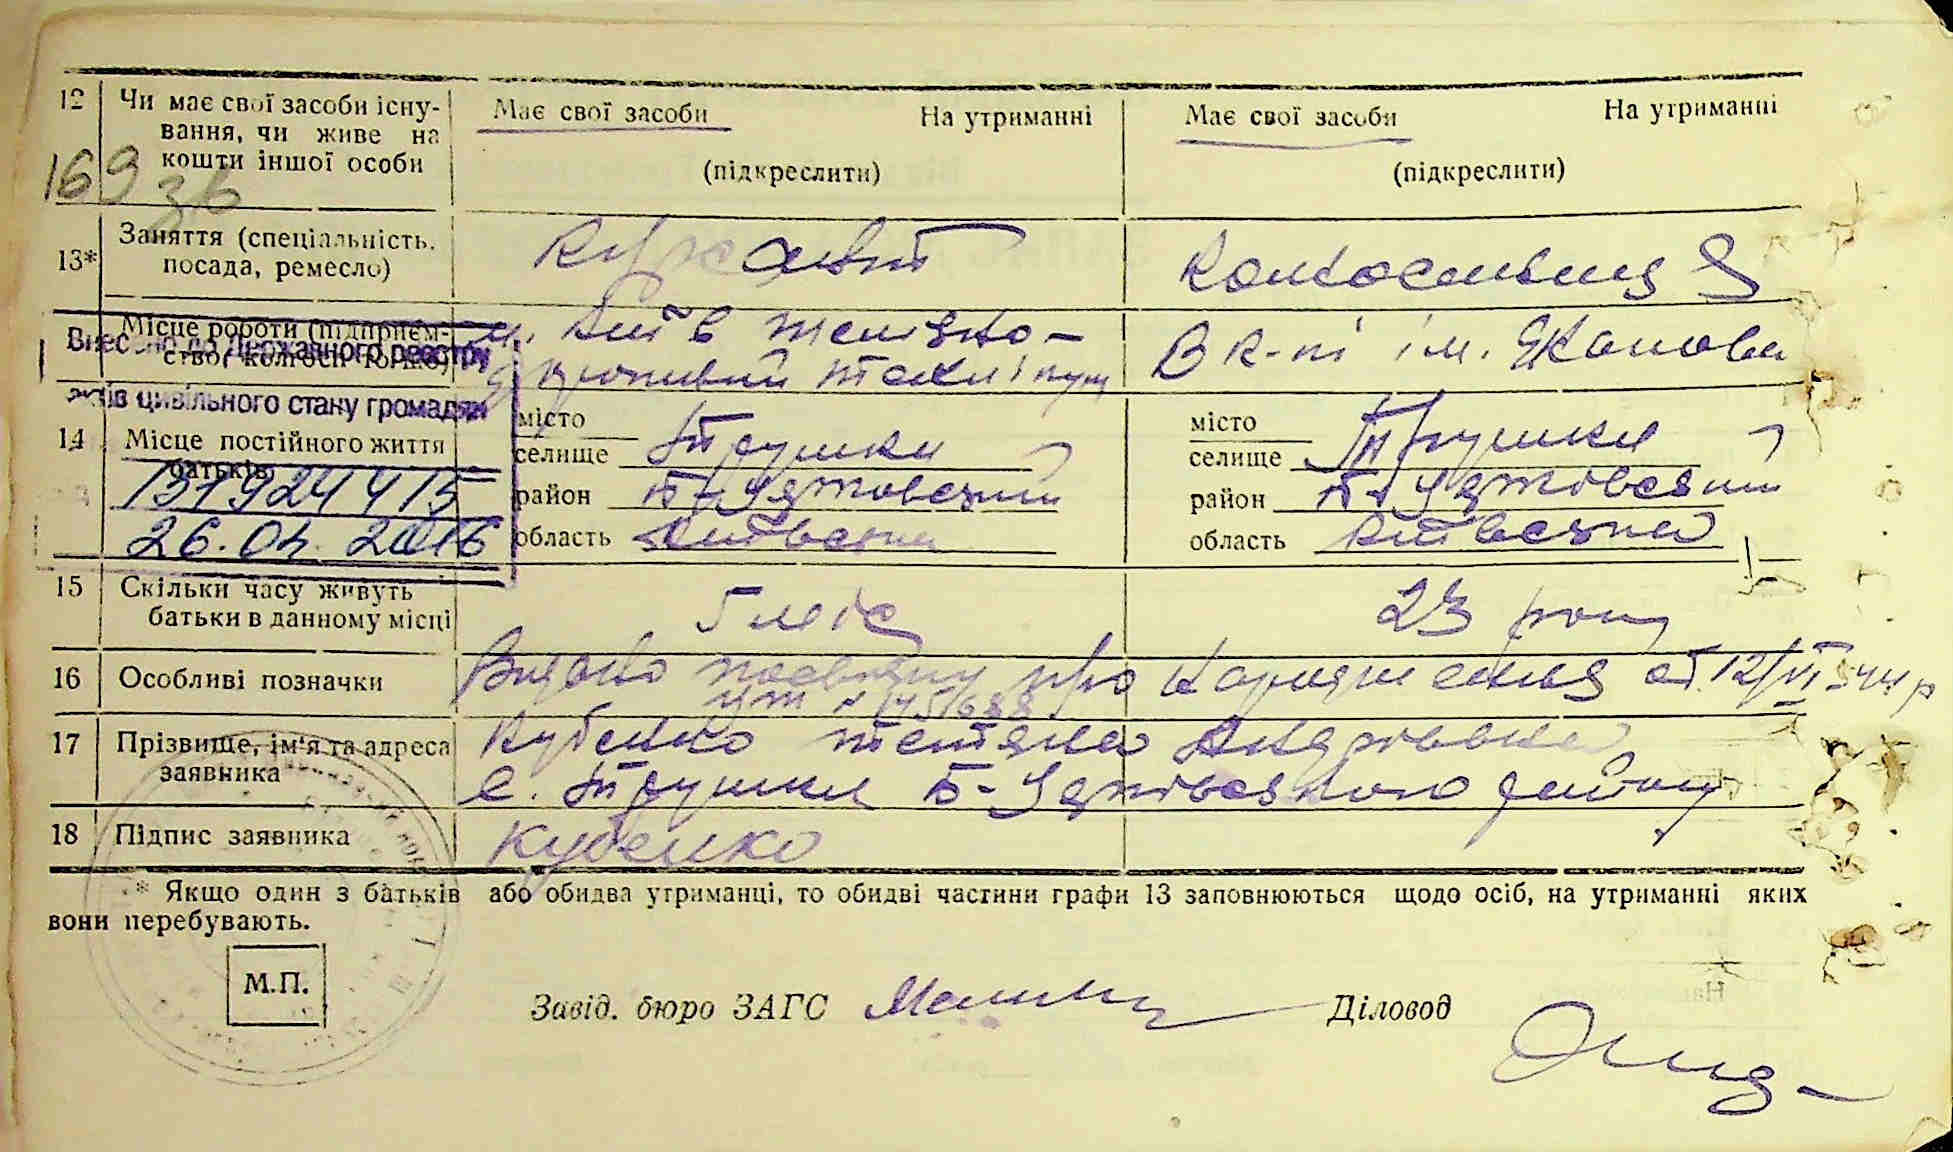 12 Чи має свої засоби існу-
вання, чи живе на
кошти іншої особи
Має свої засоби На утриманні
(підкреслити)
Має свої засоби На утриманні
(підкреслити)
169 зв
13* Заняття (спеціальність,
посада, ремесло)
Курсант
Колгоспниця
Місце роботи (підприєм-
ство, колгосп тощо)
м. Київ желізно-
В к-пі ім. Жданова
Внесено до Державного реєстру
актів цивільного стану громадян
131924415
26.04. 2016
14 Місце постійного життя
батьків
місто
селище Трушки
район Б-Церковський
область Київська
місто
селище Трушки
район Б-Церківський
область Київська
15 Скільки часу живуть
батьки в данному місці
5 міс
23 роки
16 Особливі позначки
Видано посвідку про народження от 12/VI 544 р
17 Прізвище, ім'я та адреса
заявника
Кубенко Тетяна Андріївна
с. Трушки Б-Церківського району
18 Підпис заявника
Кубенко
* Якщо один з батьків або обидва утриманці, то обидві частини графи 13 заповнюються щодо осіб, на утриманні яких
вони перебувають.
М.П.
Завід. бюро ЗАГС
Діловод